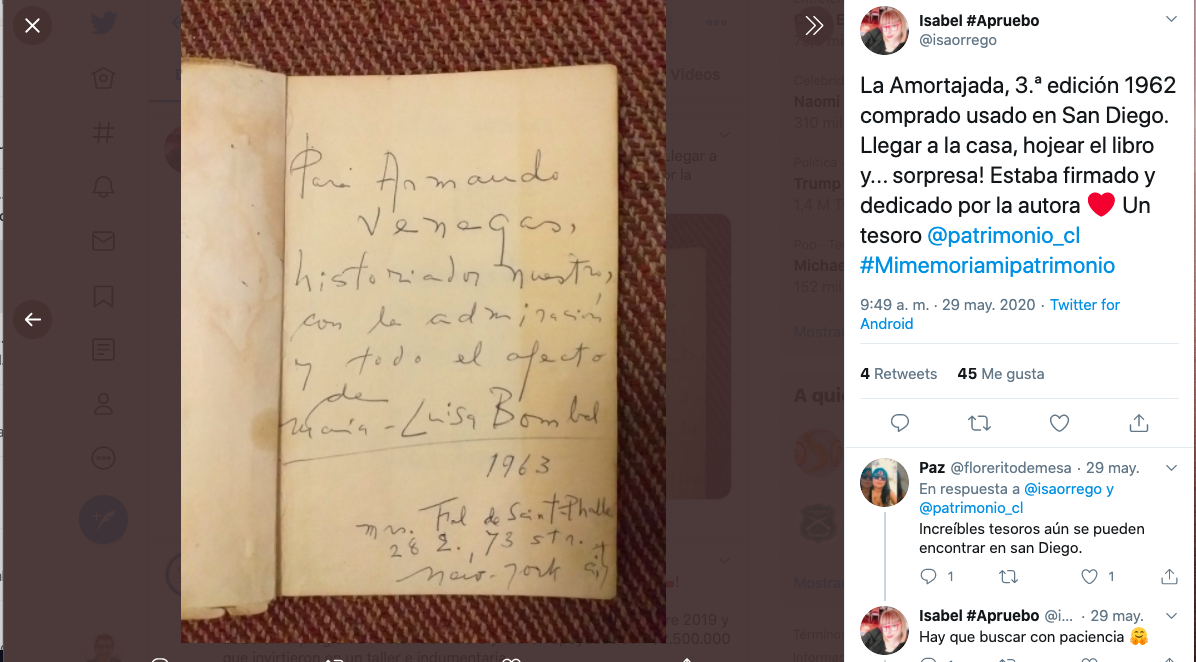 Para Armando
Venegas,
historiador nuestro,
con la admiración
y todo el afecto
de
María-Luisa Bombal
1963
Mrs. Fal de Saint-Phalle
28 E., 73 str.
New-York city
Videos
Naomi
Trump
Mostra
A qui
Mostra
que invirtieron en un taller e indumentaria
Isabel #Apruebo
@isaorrego
La Amortajada, 3.ª edición 1962
comprado usado en San Diego.
Llegar a la casa, hojear el libro
y... sorpresa! Estaba firmado y
dedicado por la autora ❤️ Un
tesoro @patrimonio_cl
#Mimemoriamipatrimonio
9:49 a. m. · 29 may. 2020 · Twitter for
Android
4 Retweets 45 Me gusta
Paz @floreritodemesa · 29 may.
En respuesta a @isaorrego y
@patrimonio_cl
Increíbles tesoros aún se pueden
encontrar en san Diego.
1 1
Isabel #Apruebo @i... · 29 may.
Hay que buscar con paciencia 🤗